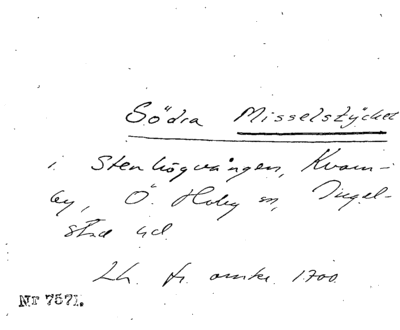 Södra Misselstycket
i Stenhögvången, Kvarn-
by, Ö. Hoby sn, Ingel-
stad hd.
Lh. fr. omkr. 1700.
Nr 7571.